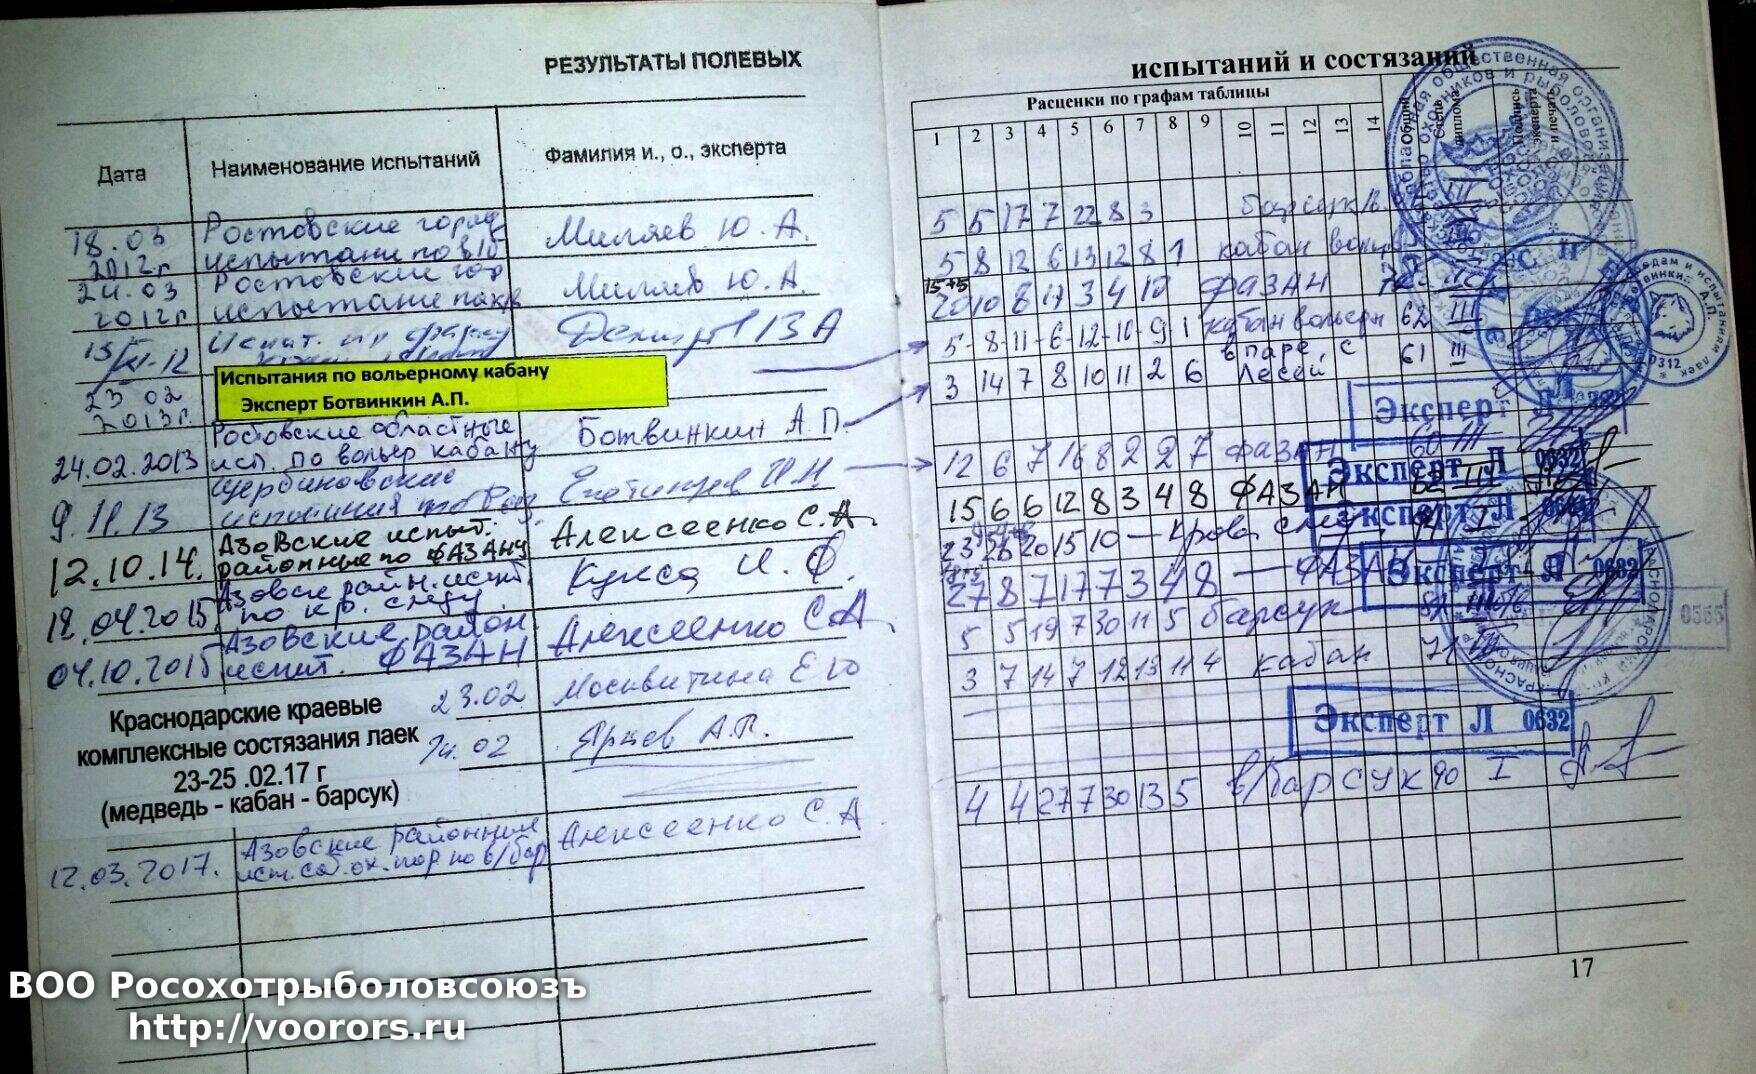 РЕЗУЛЬТАТЫ ПОЛЕВЫХ
Дата
Наименование испытаний
Фамилия и., о., эксперта
18.03
2012г
Ростовские город
испытани по в/б
Миляев Ю. А.
24.03
2012г
Ростовские гор
испытание
Миляев Ю. А.
15/XI-12
23 02
2013г.
Испытания по вольерному кабану
Эксперт Ботвинкин А.П.
24.02.2013
Ростовские областные
исп. по вольер кабану
Ботвинкин А. П.
9.11.13
Щербиновские
12.10.14.
Азовские испыт.
районные по ФАЗАНУ
Алексеенко С. А.
18.04.2015
Азовские район. испыт.
по кр. следу
Кукса И. Ф.
04.10.2015
Азовские район
испыт. ФАЗАН
Алексеенко С А
Краснодарские краевые
комплексные состязания лаек
23-25 .02.17 г
(медведь - кабан - барсук)
23.02
Москвитина Е Ю
24.02
Ярцев А. П.
12.03.2017.
Азовские районные
исп. соб. ох. пор. по в/бар
Алексеенко С. А.
испытаний и состязаний
Расценки по графам таблицы
1 2 3 4 5 6 7 8 9 10 11 12 13 14
Общий
Степ.
диплома
Подпись
эксперта
и печать
5 5 17 7 22 8 3 барсук
5 8 12 6 13 12 8 1 кабан
15+5
20 10 8 17 3 4 10 ФАЗАН
5-8-11-6-12-10-9 1 кабан вольерн 62 III
3 14 7 8 10 11 2 6 в паре с 61 III
Эксперт Л
12 6 7 16 8 2 2 7 фазан 60 III
Эксперт Л 0632
15 6 6 12 8 3 4 8 ФАЗАН 62 III
Эксперт Л
23 25 20 15 10 - Кровян след I
Эксперт Л 0632
27 8 7 17 7 3 4 8 - ФАЗАН
5 5 19 7 30 11 5 барсук
0555
3 7 14 7 12 13 11 4 кабан 71
Эксперт Л 0632
4 4 27 7 30 13 5 в/барсук 90 I
17
ВОО Росохотрыболовсоюзъ
http://voorors.ru